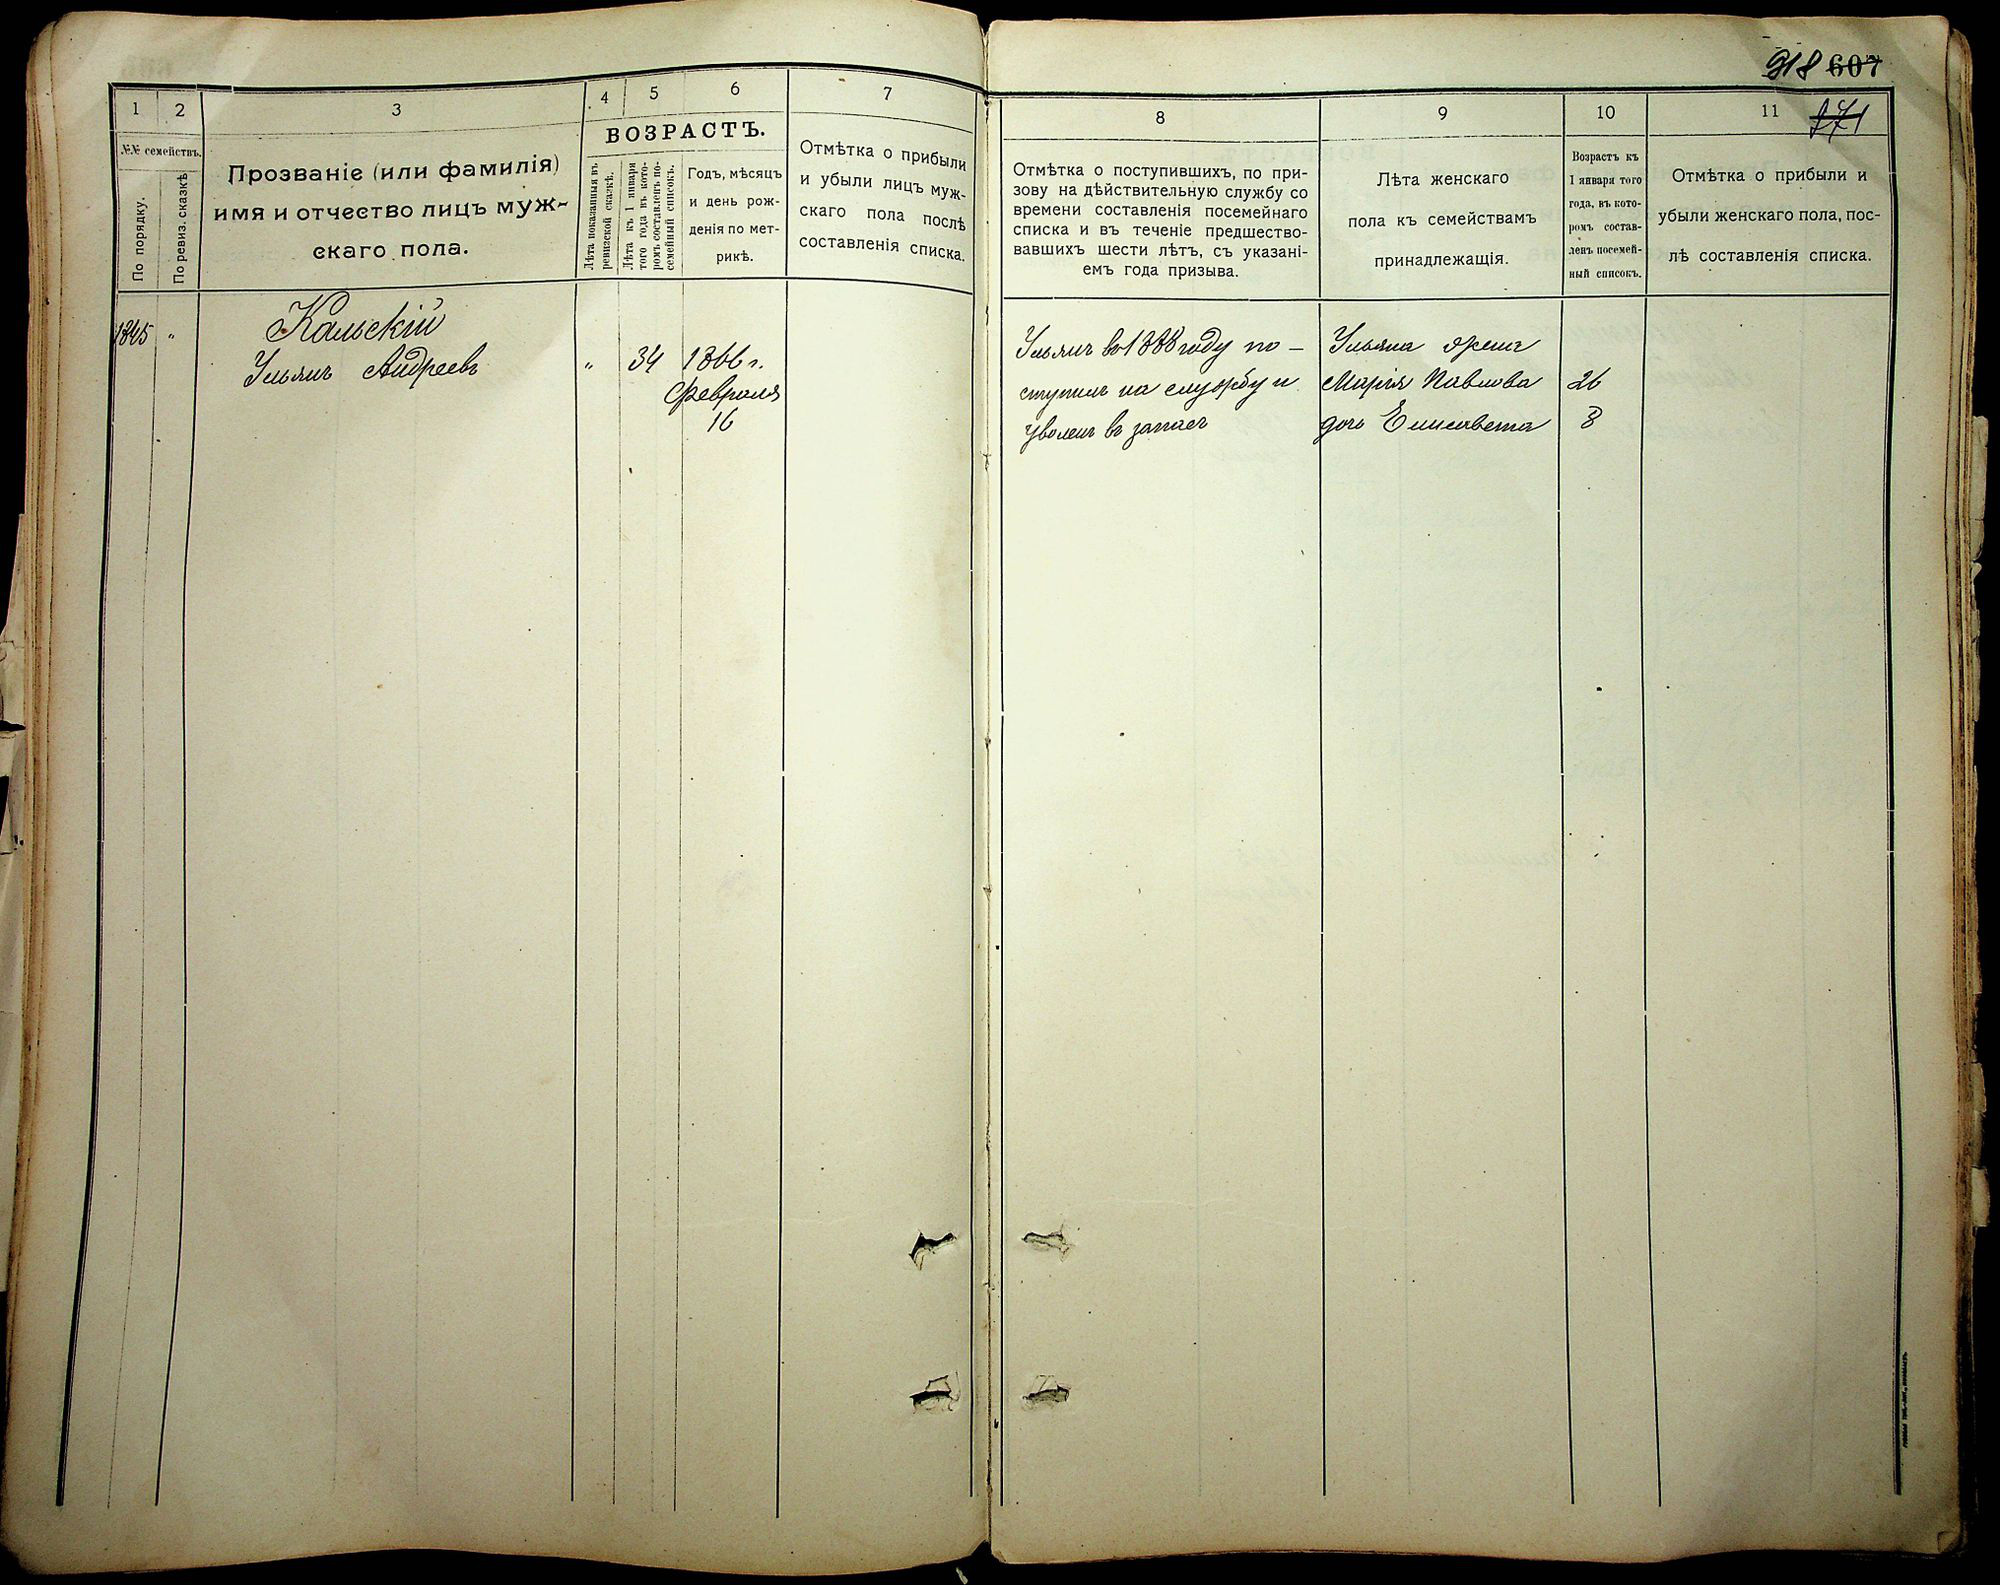 918 607
1
2
3
4
5
6
7
№№ семействъ.
По порядку.
По ревиз. сказкѣ
Прозваніе (или фамилія)
имя и отчество лицъ муж-
скаго пола.
ВОЗРАСТЪ.
Лѣта показанныя въ
ревизской сказкѣ.
Лѣта къ 1 января
того года въ кото-
ромъ составленъ по-
семейный списокъ.
Годъ, мѣсяцъ
и день рож-
денія по мет-
рикѣ.
Отмѣтка о прибыли
и убыли лицъ муж-
скаго пола послѣ
составленія списка.
1345 "
Кальскій
Ульянъ Андреевъ
" 34 1866 г.
Февраля
16
8
9
10
11
171
Отмѣтка о поступившихъ, по при-
зову на дѣйствительную службу со
времени составленія посемейнаго
списка и въ теченіе предшество-
вавшихъ шести лѣтъ, съ указані-
емъ года призыва.
Лѣта женскаго
пола къ семействамъ
принадлежащія.
Возрастъ къ
1 января того
года, въ кото-
ромъ состав-
ленъ посемей-
ный списокъ.
Отмѣтка о прибыли и
убыли женскаго пола, пос-
лѣ составленія списка.
Ульянъ въ 1888 году по-
ступилъ на службу и
уволенъ въ запасъ
Ульяна жена
Марія Павлова 26
дочь Елисавета 3